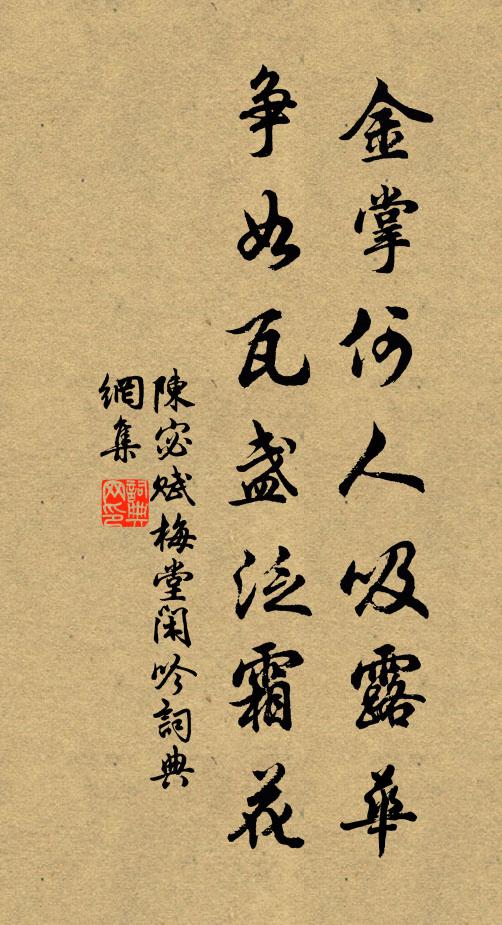 金掌何人吸露華
爭如瓦盞泛霜花
陳宓賦梅堂閑吟詞典
網集
詞典網印